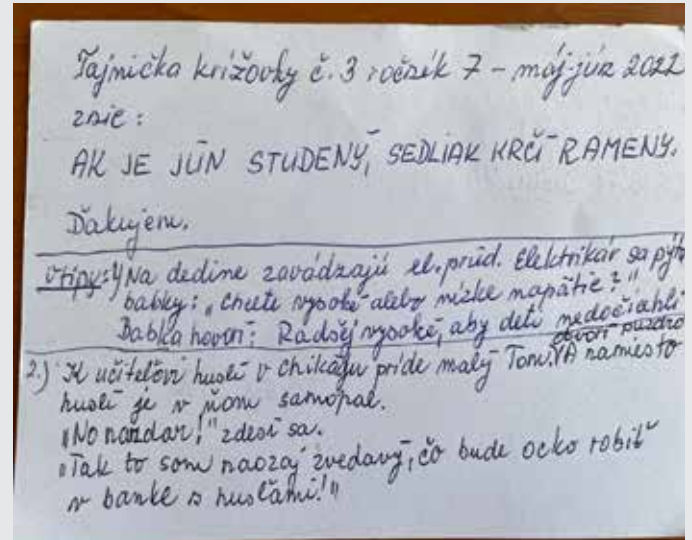 Tajnička krížovky č. 3 ročník 7 – máj-jún 2022
znie:
AK JE JÚN STUDENÝ, SEDLIAK KRČÍ RAMENY.
Ďakujem.
Vtipy: 1) Na dedine zavádzajú el. prúd. Elektrikár sa pýta
babky: „Chcete vysoké alebo nízke napätie?"
Babka hovorí: Radšej vysoké, aby deti nedočiahli
otvorí puzdro
2.) K učiteľovi huslí v Chikágu príde malý Tom. A namiesto
huslí je v ňom samopal.
„No nazdar!" zdesí sa.
„Tak to som naozaj zvedavý, čo bude ocko robiť
v banke s husľami!"